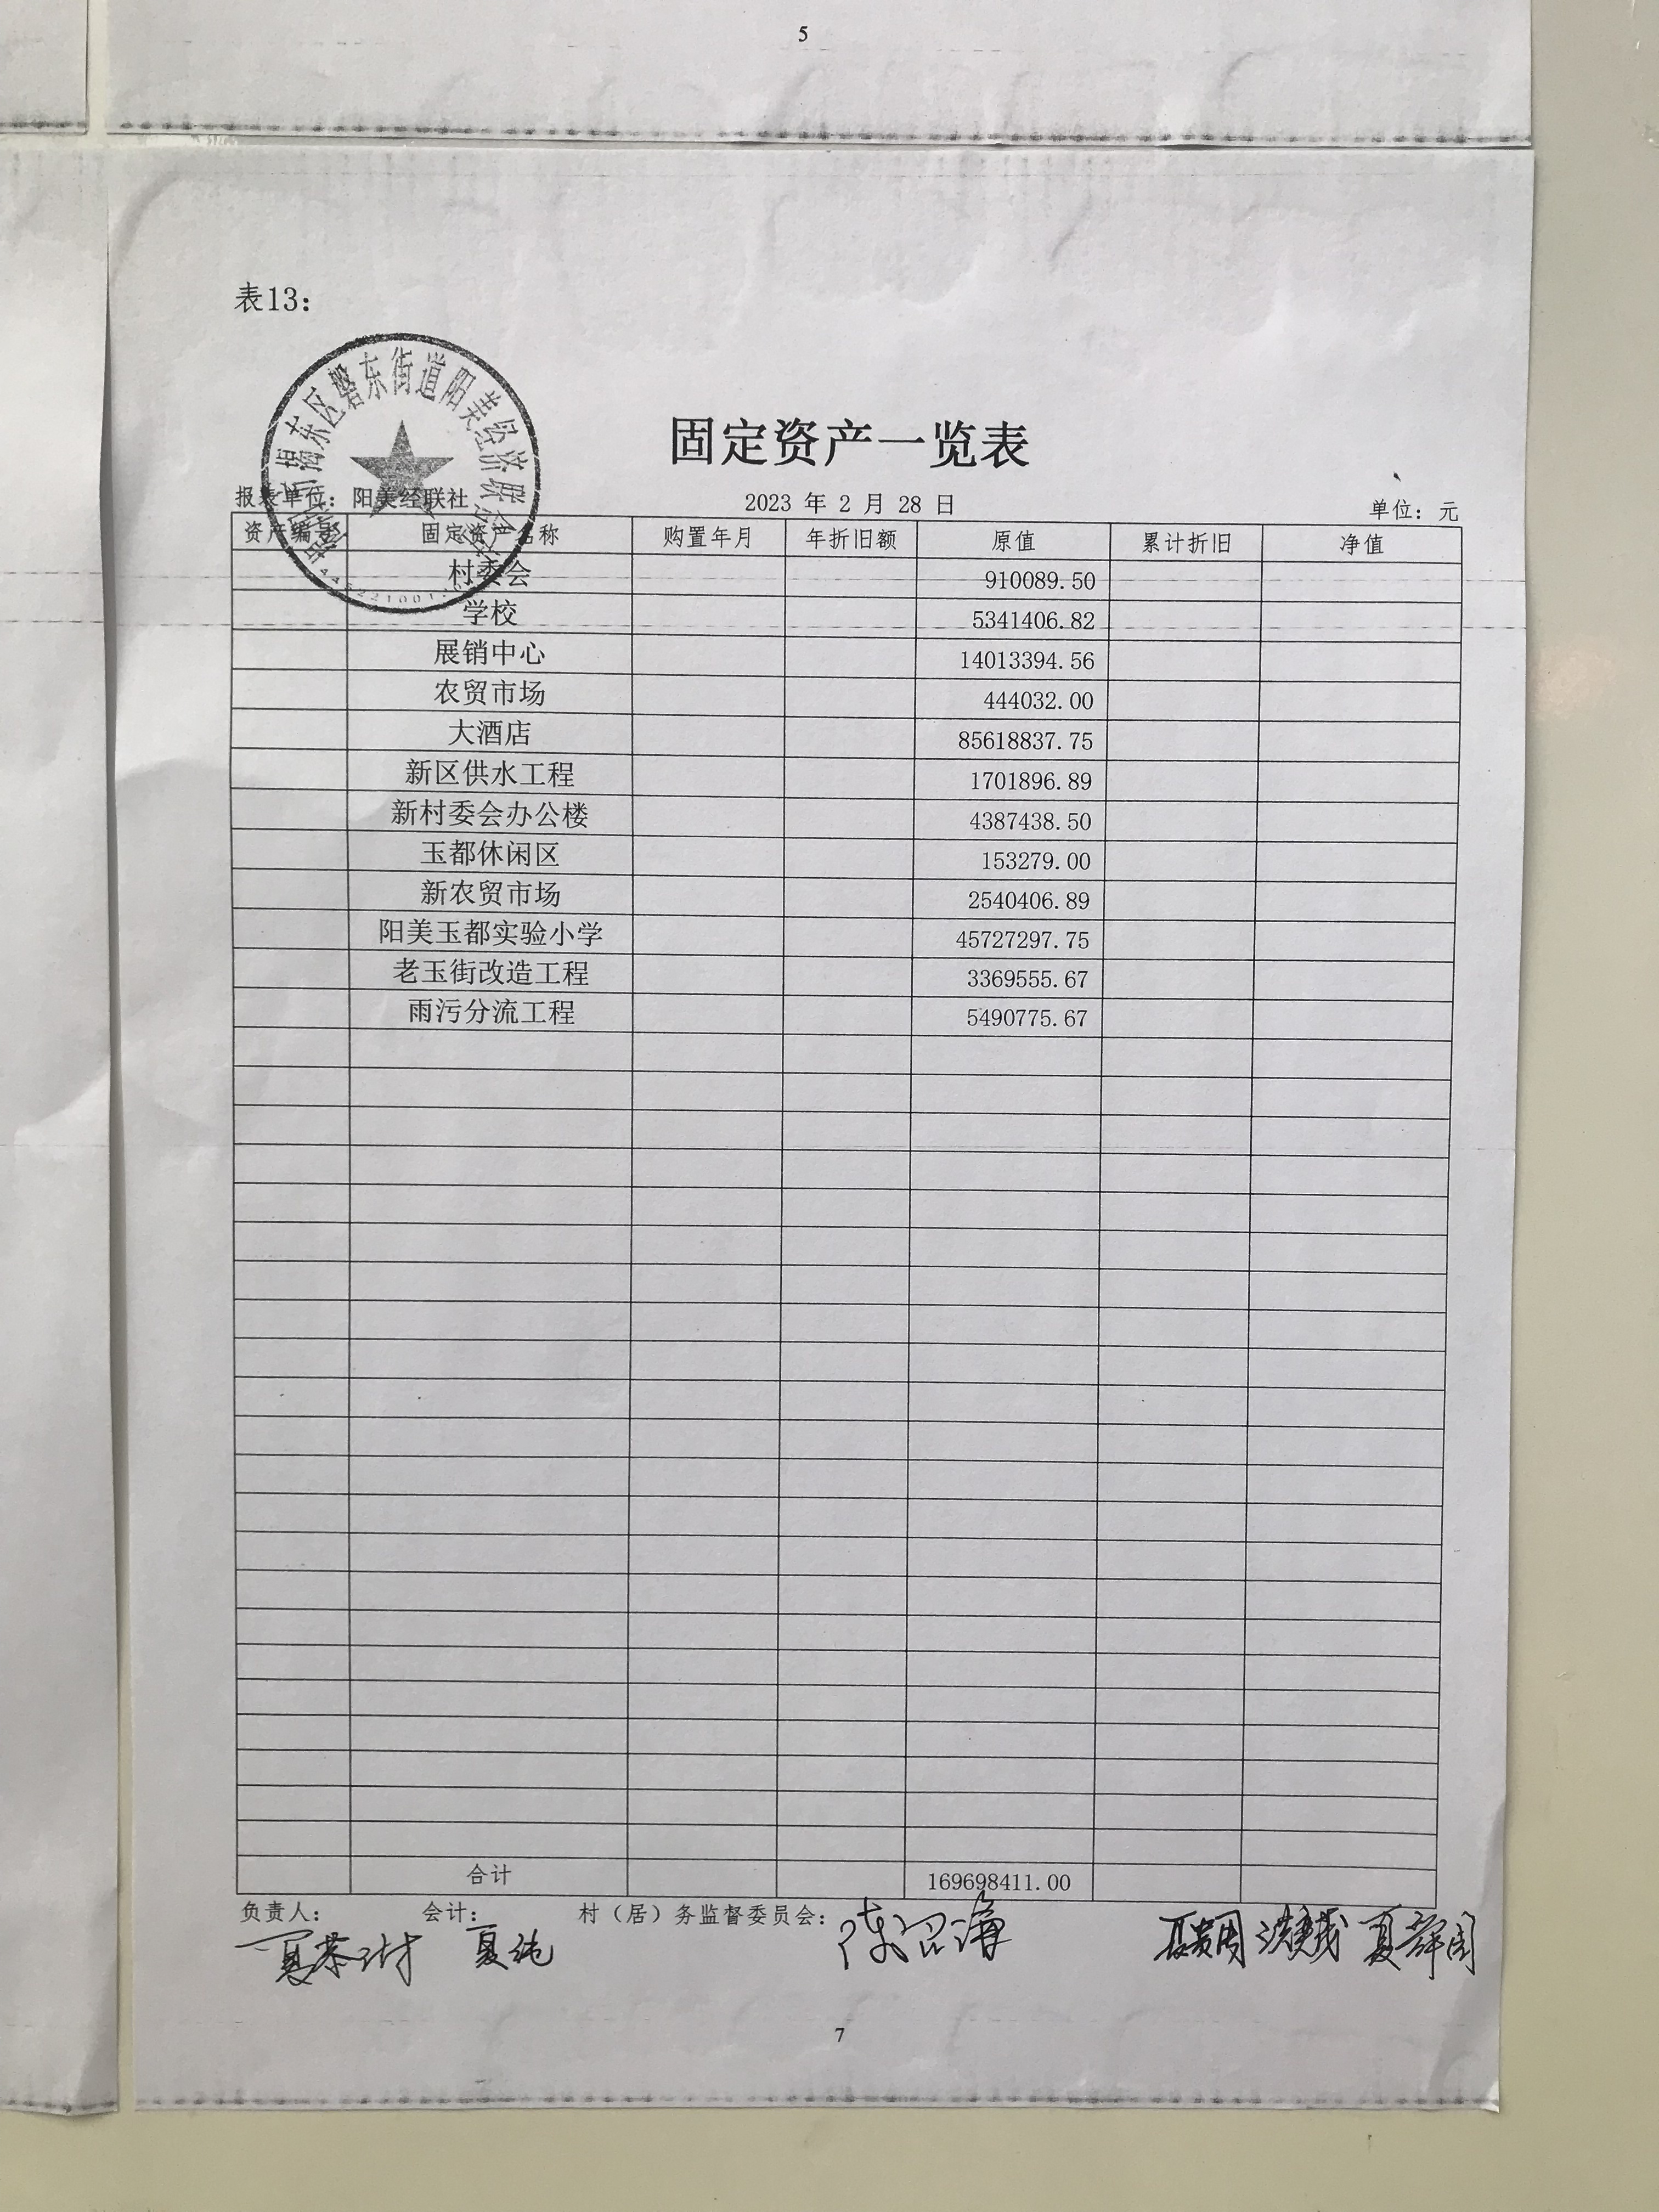 5
表13：
揭东区磐东街道阳美经济联合社
固定资产一览表
报表单位：阳美经联社 2023 年 2 月 28 日 单位：元
资产编号 固定资产名称 购置年月 年折旧额 原值 累计折旧 净值
村委会 910089.50
学校 5341406.82
展销中心 14013394.56
农贸市场 444032.00
大酒店 85618837.75
新区供水工程 1701896.89
新村委会办公楼 4387438.50
玉都休闲区 153279.00
新农贸市场 2540406.89
阳美玉都实验小学 45727297.75
老玉街改造工程 3369555.67
雨污分流工程 5490775.67
合计 169698411.00
负责人： 会计： 村（居）务监督委员会：
7